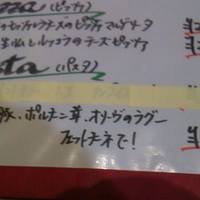 zza (ピッツァ)
のモッツァレラチーズのピッツァ マルゲリータ
生ハムとルッコラのチーズピッツァ
sta (パスタ)
豚、ポルチーニ茸、オリーヴのラグー
フェットチーネで!